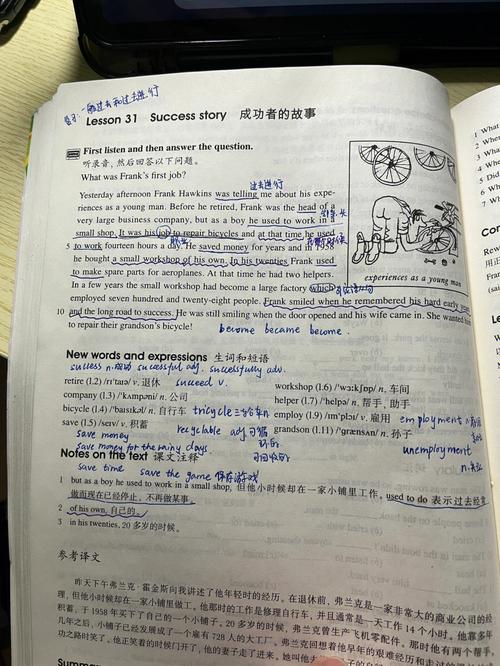 复习: 一般过去和过去进行
Lesson 31 Success story 成功者的故事
First listen and then answer the question.
听录音，然后回答以下问题。
What was Frank's first job?
过去进行
Yesterday afternoon Frank Hawkins was telling me about his expe-
riences as a young man. Before he retired, Frank was the head of a
very large business company, but as a boy he used to work in a
small shop. It was his job to repair bicycles and at that time he used
5 to work fourteen hours a day. He saved money for years and in 1958
he bought a small workshop of his own. In his twenties Frank used
to make spare parts for aeroplanes. At that time he had two helpers.
In a few years the small workshop had become a large factory which
employed seven hundred and twenty-eight people. Frank smiled when he remembered his hard early years
10 and the long road to success. He was still smiling when the door opened and his wife came in. She wanted him
to repair his grandson's bicycle!
become became become.
experiences as a young man
New words and expressions 生词和短语
success n.成功 successful adj. successfully adv.
retire (l.2) /rɪ'taɪə/ v. 退休
succeed v.
company (l.3) /'kʌmpəni/ n. 公司
bicycle (l.4) /'baɪsɪkəl/ n. 自行车
tricycle 三轮车 n
save (l.5) /seɪv/ v. 积蓄
recyclable adj 可循环的
可回收的
workshop (l.6) /'wɜːkʃɒp/ n. 车间
helper (l.7) /'helpə/ n. 帮手，助手
employ (l.9) /ɪm'plɔɪ/ v. 雇用
employment n
grandson (l.11) /'grænsʌn/ n. 孙子
unemployment
n.失业
save money
save money for the rainy days
save time save the game 保存游戏
Notes on the text 课文注释
1 but as a boy he used to work in a small shop, 但他小时候却在一家小铺里工作。used to do 表示过去经常
做而现在已经停止、不再做某事。
2 of his own, 自己的。
3 in his twenties, 20多岁的时候。
参考译文
昨天下午弗兰克·霍金斯向我讲述了他年轻时的经历。在退休前，弗兰克是一家非常大的商业公司的经
理，但他小时候却在一家小铺里做工。他那时的工作是修理自行车，并且通常是一天工作14个小时。他靠多年
积蓄，于1958年买下了自己的一个小铺子。20多岁的时候，弗兰克曾生产飞机零配件。那时他有两个帮手。
几年之后，小铺子已经发展成了一个雇有728人的大工厂。弗兰克回想着他早年的艰难经历和
功之路时笑了。他正笑着的时候门开了，他的妻子走了进来。她叫他去